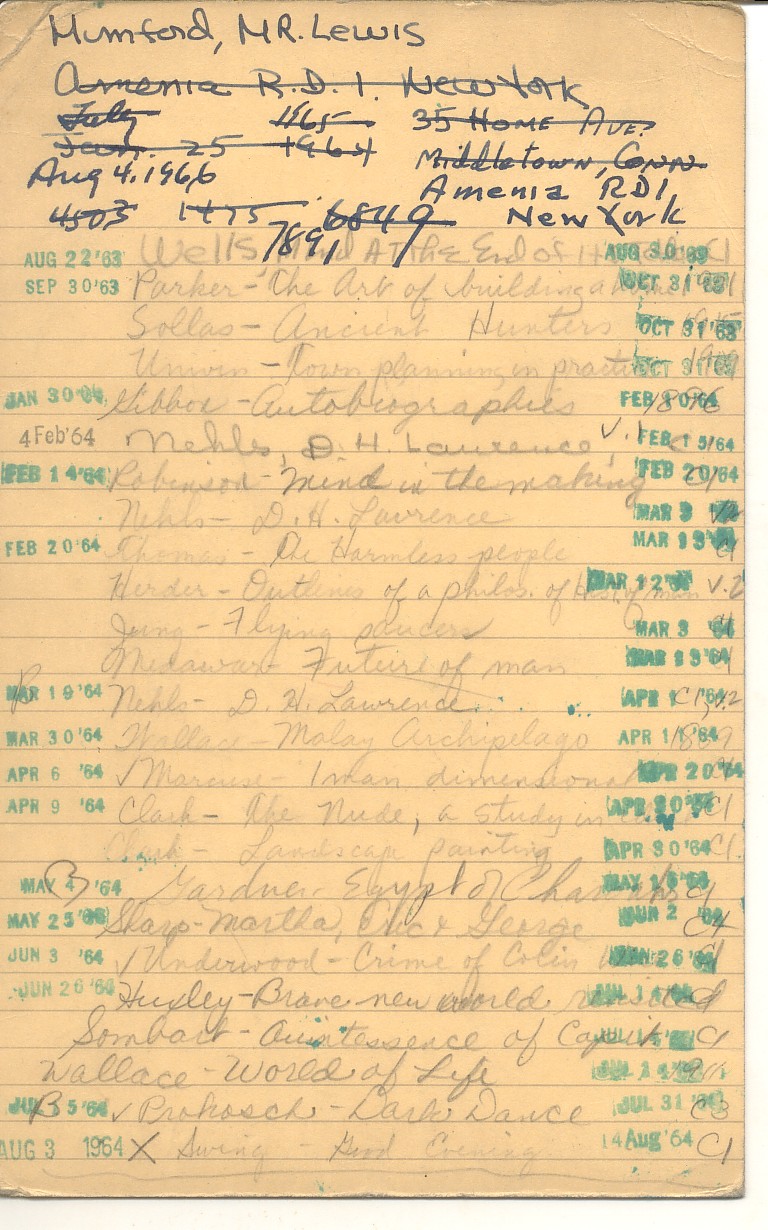 Mumford, MR. Lewis
Amenia R.D. 1. New York
July 1965 35 Home Ave.
Jan. 25 1964 Middletown, Conn
Aug 4. 1966 Amenia RD1,
4503 1475 6849 New York
7891
AUG 22 '63 Wells, Mind At the End of C1
SEP 30 '63 Parker - The Art of building a OCT 31 '63
Sollas - Ancient Hunters OCT 31 '63
Unwin - Town planning in practice 1909 OCT 31 '63
JAN 30 '64 Gibbon - Autobiographies FEB 10 '64 1896
4 Feb '64 Nehls, D. H. Lawrence, v. 1 FEB 15 '64
FEB 14 '64 Robinson - Mind in the making FEB 20 '64 C1
Nehls - D. H. Lawrence MAR 9 V2
FEB 20 '64 Thomas - The Harmless people MAR 13 '64 C1
Herder - Outlines of a philos. of hist. of man V. 2 MAR 12 '64
Jung - Flying saucers MAR 3 '64 C1
Medawar - Future of man MAR 13 '64
MAR 19 '64 Nehls - D. H. Lawrence APR 1 '64 C1, v.2
MAR 30 '64 Wallace - Malay Archipelago APR 11 '64 1869
APR 6 '64 ✓ Marcuse - 1 man dimensional APR 20 '64
APR 9 '64 Clark - The Nude, a study in APR 30 '64 C1
Clark - Landscape painting APR 30 '64 C1
MAY 4 '64 Gardner - Egypt of MAY 18 '64 C1
MAY 25 '64 Sharp - Martha, Eric & George JUN 2 '64 C4
JUN 3 '64 ✓ Underwood - Crime of Colin JUN 26 '64 C1
JUN 26 '64 Huxley - Brave new world revisited C1
Sombart - Quintessence of Capit. C1
Wallace - World of Life
✓ Prokosch - Dark Dance JUL 31 '64 C3
AUG 3 1964 X Swing - Good Evening 14 Aug '64 C1